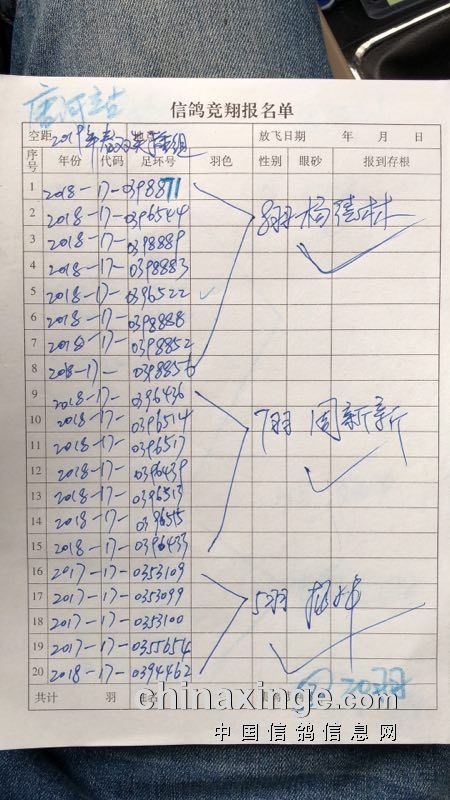 唐河站
信鸽竞翔报名单
空距 2019年春 地点 组 放飞日期 年 月 日
序号 年份 代码 足环号 羽色 性别 眼砂 报到存根
1 2018-17-0398871
2 2018-17-0396544 8羽 杨德林
3 2018-17-0398889
4 2018-17-0398883
5 2018-17-0396522
6 2018-17-0398888
7 2018-17-0398852
8 2018-17-0398856
9 2018-17-0396436
10 2018-17-0396514 7羽 周新新
11 2018-17-0396517
12 2018-17-0396439
13 2018-17-0396513
14 2018-17-0396515
15 2018-17-0396433
16 2017-17-0353109
17 2017-17-0353099 5羽 杨
18 2017-17-0353100
19 2017-17-0355654
20 2018-17-0394462
共计 羽 20羽
chinaxinge.com
中国信鸽信息网